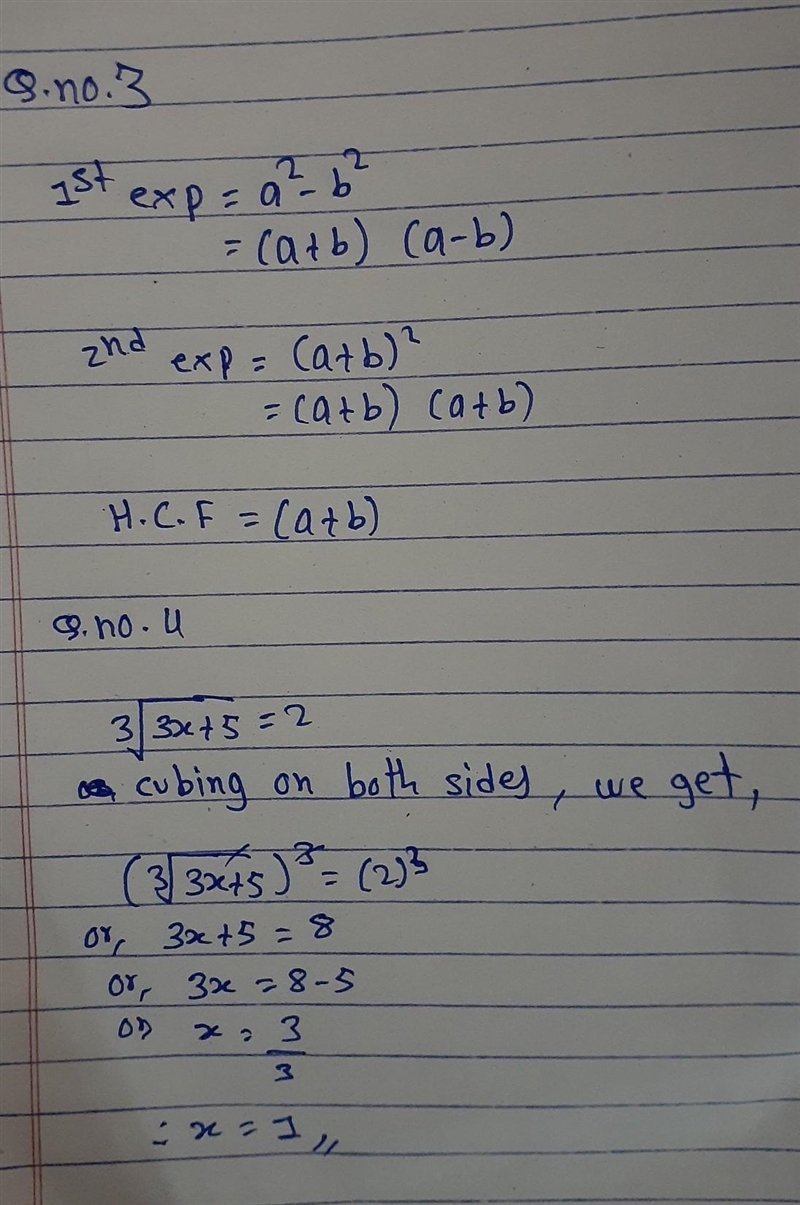 Q.no.3
1st exp = a² - b²
= (a+b) (a-b)
2nd exp = (a+b)²
= (a+b) (a+b)
H.C.F = (a+b)
Q.no.4
∛3x+5 = 2
cubing on both sides, we get,
(∛3x+5)³ = (2)³
or, 3x+5 = 8
or, 3x = 8-5
or x = 3/3
∴ x = 1,,